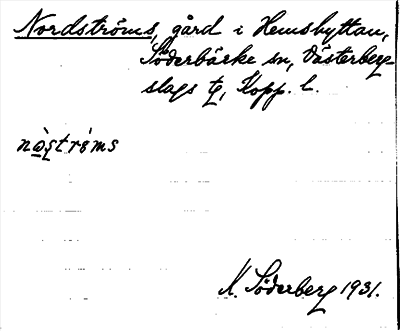 Nordströms, gård i Hemshyttan,
Söderbärke sn, Västerberg
slags tg, Kopp. l.
nɷ̀ʂtrǿms
N. Söderberg 1931.